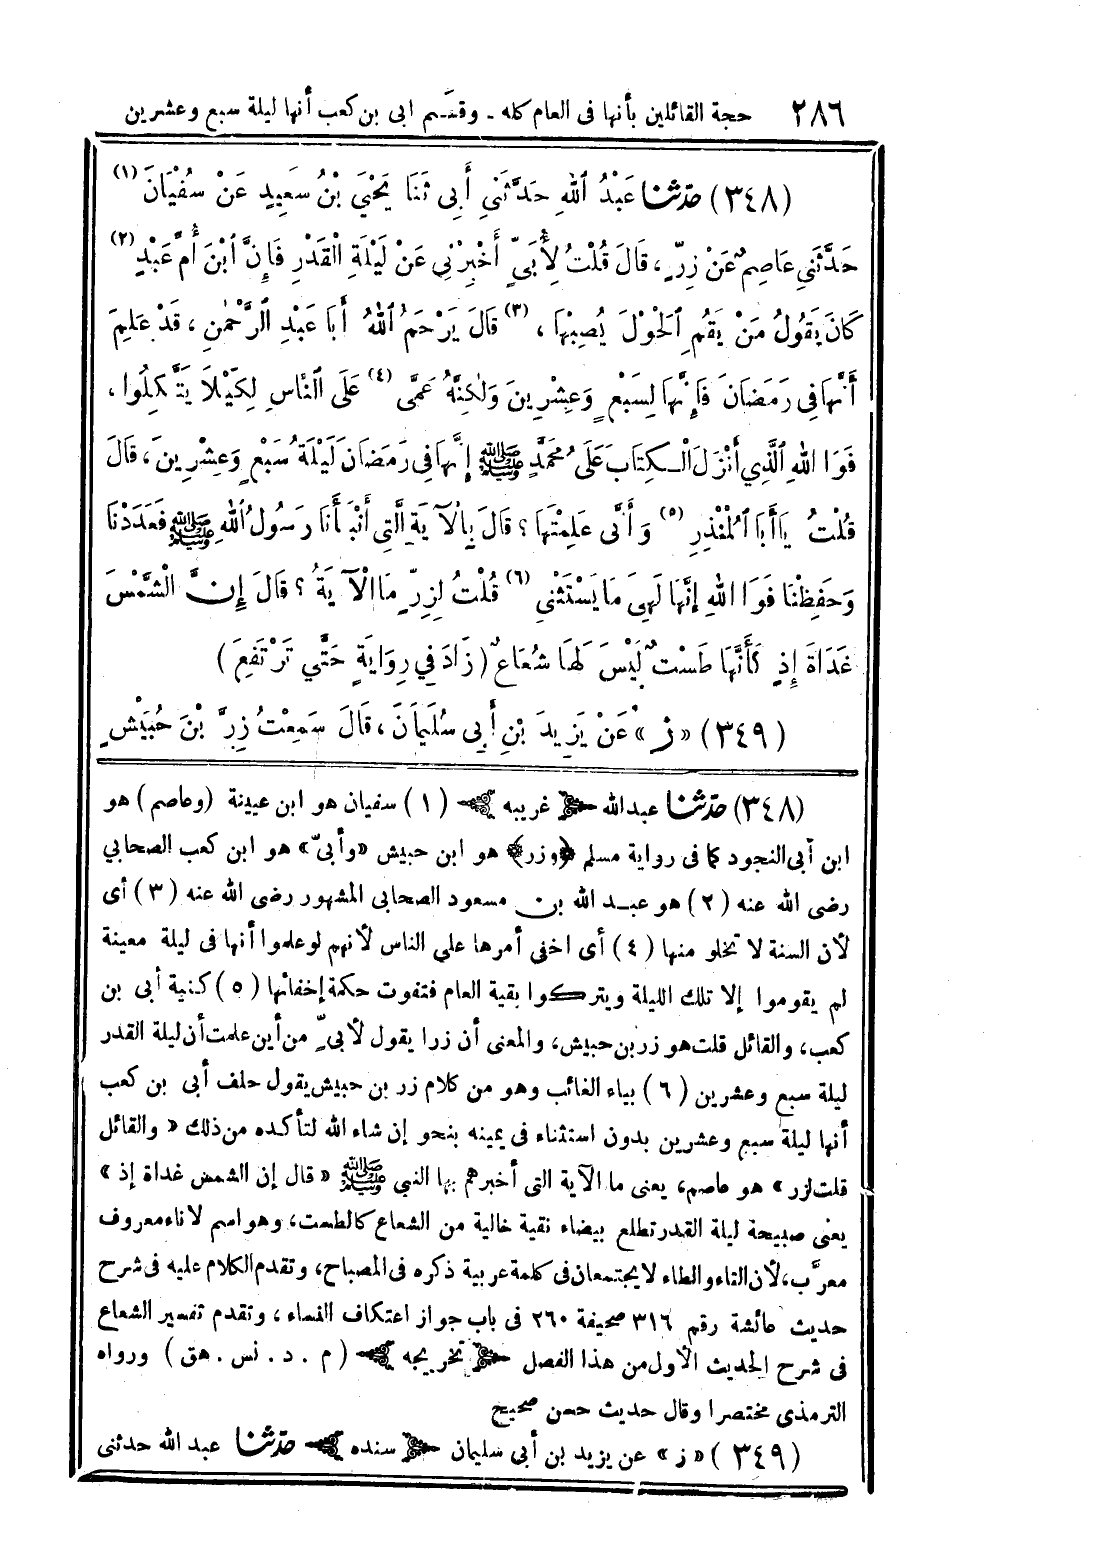 ٢٨٦ حجة القائلين بأنها فى العام كله - وقسم ابى بن كعب أنها ليلة سبع وعشرين
(٣٤٨) حدّثنا عَبْدُ اللهِ حَدَّثَنِى أَبِى ثَنَا يَحْيَ بْنُ سَعِيدٍ عَنْ سُفْيَانَ (١)
حَدَّثَنِى عَاصِمٌ عَنْ زِرٍّ، قَالَ قُلْتُ لِأُبَىٍّ أَخْبِرْنِى عَنْ لَيْلَةِ الْقَدْرِ فَإِنَّ ابْنَ أُمِّ عَبْدٍ (٢)
كَانَ يَقُولُ مَنْ يَقُمِ الْحَوْلَ يُصِبْهَا، (٣) قَالَ يَرْحَمُ اللهُ أَبَا عَبْدِ الرَّحْمٰنِ، قَدْ عَلِمَ
أَنَّهَا فِى رَمَضَانَ فَإِنَّهَا لِسَبْعٍ وَعِشْرِينَ وَلٰكِنَّهُ عَمَّى (٤) عَلَى النَّاسِ لِكَيْلَا يَتَّكِلُوا،
فَوَ اللهِ الَّذِي أَنْزَلَ الْكِتَابَ عَلَى مُحَمَّدٍ ﷺ إِنَّهَا فِى رَمَضَانَ لَيْلَةُ سَبْعٍ وَعِشْرِينَ، قَالَ
قُلْتُ يَا أَبَا الْمُنْذِرِ (٥) وَأَنَّى عَلِمْتَهَا؟ قَالَ بِالْآيَةِ الَّتِى أَنْبَأَنَا رَسُولُ اللهِ ﷺ فَعَدَدْنَا
وَحَفِظْنَا فَوَ اللهِ إِنَّهَا لَهِىَ مَا يَسْتَثْنِى (٦) قُلْتُ لِزِرٍّ مَا الْآيَةُ؟ قَالَ إِنَّ الشَّمْسَ
غَدَاةَ إِذٍ كَأَنَّهَا طَسْتٌ لَيْسَ لَهَا شُعَاعٌ (زَادَ فِي رِوَايَةٍ حَتَّى تَرْتَفِعَ)
(٣٤٩) «ز» عَنْ يَزِيدَ بْنِ أَبِى سُلَيْمَانَ، قَالَ سَمِعْتُ زِرَّ بْنَ حُبَيْشٍ
(٣٤٨) حدّثنا عبد الله غريبه (١) سفيان هو ابن عيينة (وعاصم) هو
ابن أبى النجود كما فى رواية مسلم (وزر) هو ابن حبيش «وأبىّ» هو ابن كعب الصحابي
رضى الله عنه (٢) هو عبد الله بن مسعود الصحابى المشهور رضى الله عنه (٣) أى
لأن السنة لا تخلو منها (٤) أى اخفى أمرها على الناس لأنهم لو علموا أنها فى ليلة معينة
لم يقوموا إلا تلك الليلة ويتركوا بقية العام فتفوت حكمة إخفائها (٥) كنية أبى بن
كعب، والقائل قلت هو زر بن حبيش، والمعنى أن زرا يقول لأبىّ من أين علمت أن ليلة القدر
ليلة سبع وعشرين (٦) بياء الغائب وهو من كلام زر بن حبيش يقول حلف أبى بن كعب
أنها ليلة سبع وعشرين بدون استثناء فى يمينه بنحو إن شاء الله لتأكده من ذلك «والقائل
قلت لزر» هو عاصم، يعنى ما الآية التى أخبرهم بها النبى ﷺ «قال إن الشمس غداة إذ»
يعنى صبيحة ليلة القدر تطلع بيضاء نقية خالية من الشعاع كالطست، وهو اسم لاناء معروف
معرَّب، لأن التاء والطاء لا يجتمعان فى كلمة عربية ذكره فى المصباح، وتقدم الكلام عليه فى شرح
حديث عائشة رقم ٣١٦ صحيفة ٢٦٠ فى باب جواز اعتكاف النساء، وتقدم تفسير الشعاع
فى شرح الحديث الأول من هذا الفصل تخريجه (م . د . نس . هق) ورواه
الترمذى مختصرا وقال حديث حسن صحيح
(٣٤٩) «ز» عن يزيد بن أبى سليمان سنده حدّثنا عبد الله حدثنى